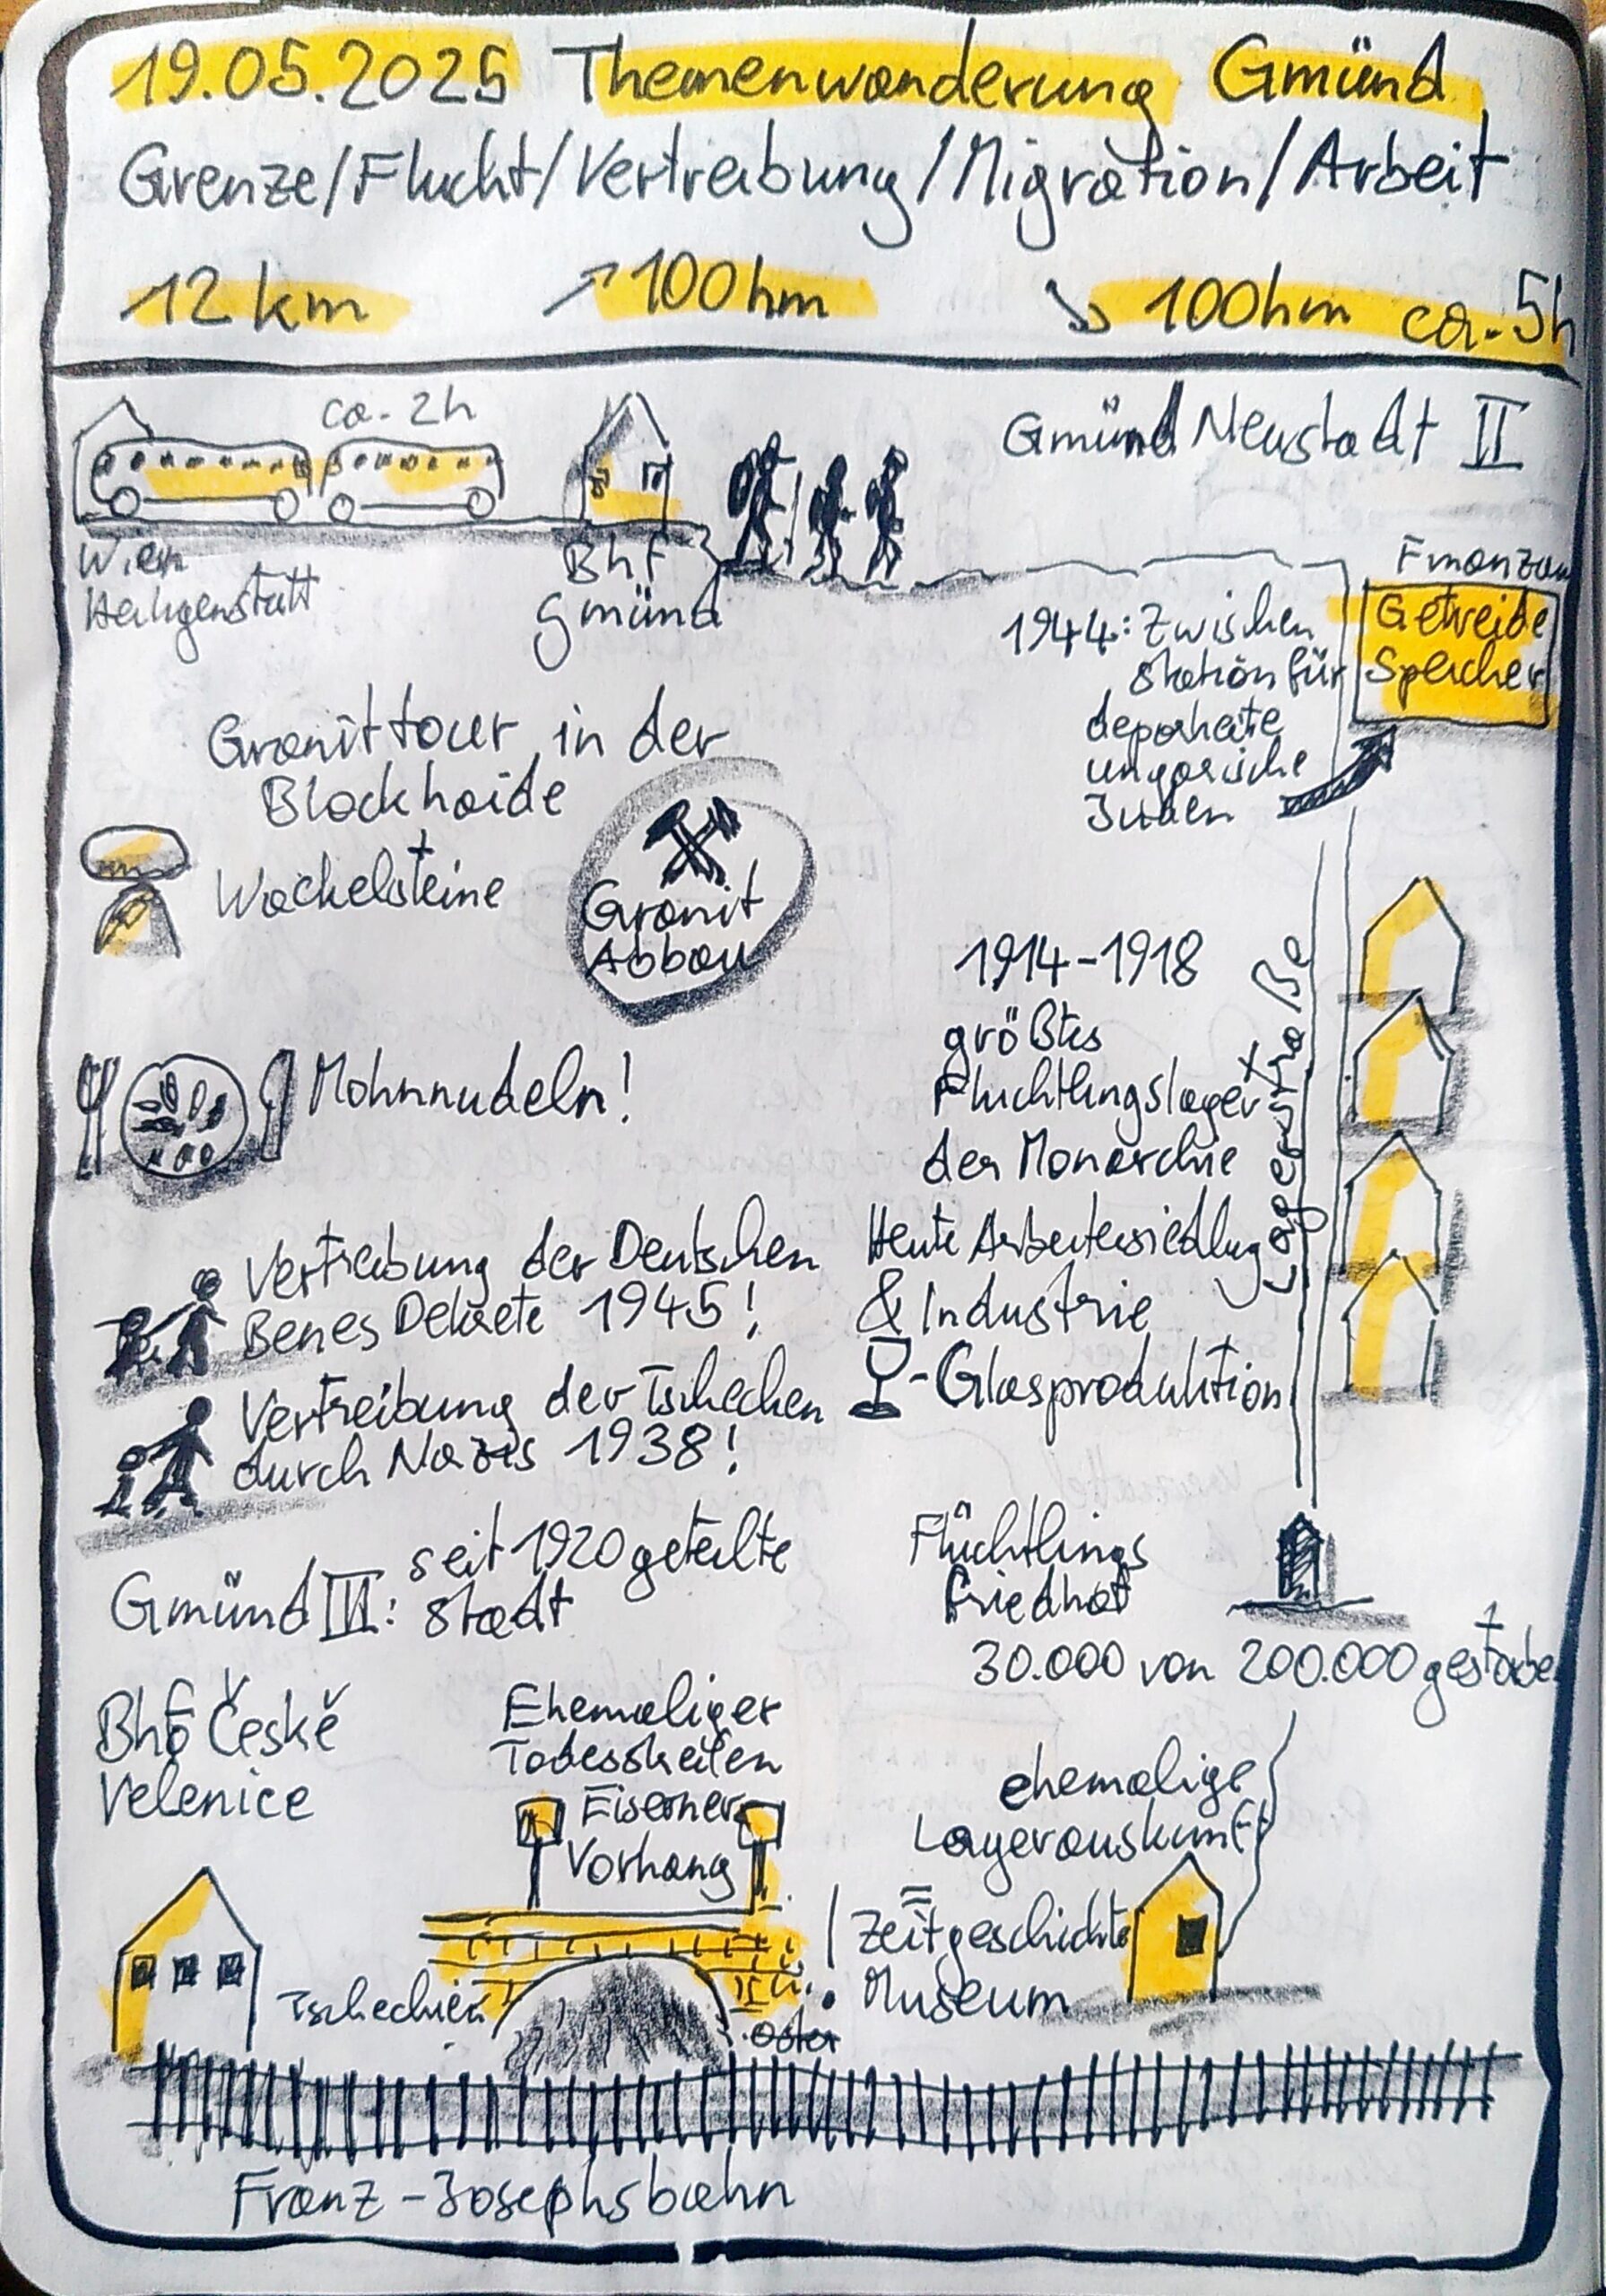 19.05.2025 Themenwanderung Gmünd
Grenze/Flucht/Vertreibung/Migration/Arbeit
12 km ↗100hm ↘ 100hm ca. 5h
ca. 2h
Wien
Heiligenstatt
Bhf
Gmünd
Gmünd Neustadt II
Finanzam
Getreide
Speicher
1944: Zwischen
station für
deportierte
ungarische
Juden
Granittour in der
Blockhaide
Wackelsteine
Granit
Abbau
Mohnnudeln!
1914-1918
größtes
Flüchtlingslager
der Monarchie
Heute Arbeitersiedlung
& Industrie
-Glasproduktion
Lagerstraße
Vertreibung der Deutschen
Benes Dekrete 1945!
Vertreibung der Tschechen
durch Nazis 1938!
Gmünd III: seit 1920 geteilte
Stadt
Flüchtlings
friedhof
30.000 von 200.000 gestorbe
Bhf České
Velenice
Ehemaliger
Todesstreifen
Eiserner
Vorhang
ehemalige
Lagerauskunft
=
Zeitgeschichte
Museum
Tschechien
Öster
Franz-Josephsbahn